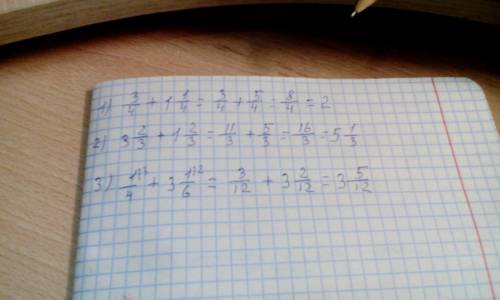 1) 3/4 + 1 1/4 = 3/4 + 5/4 = 8/4 = 2
2) 3 2/3 + 1 2/3 = 11/3 + 5/3 = 16/3 = 5 1/3
3) 1/4 + 3 1/6 = 3/12 + 3 2/12 = 3 5/12